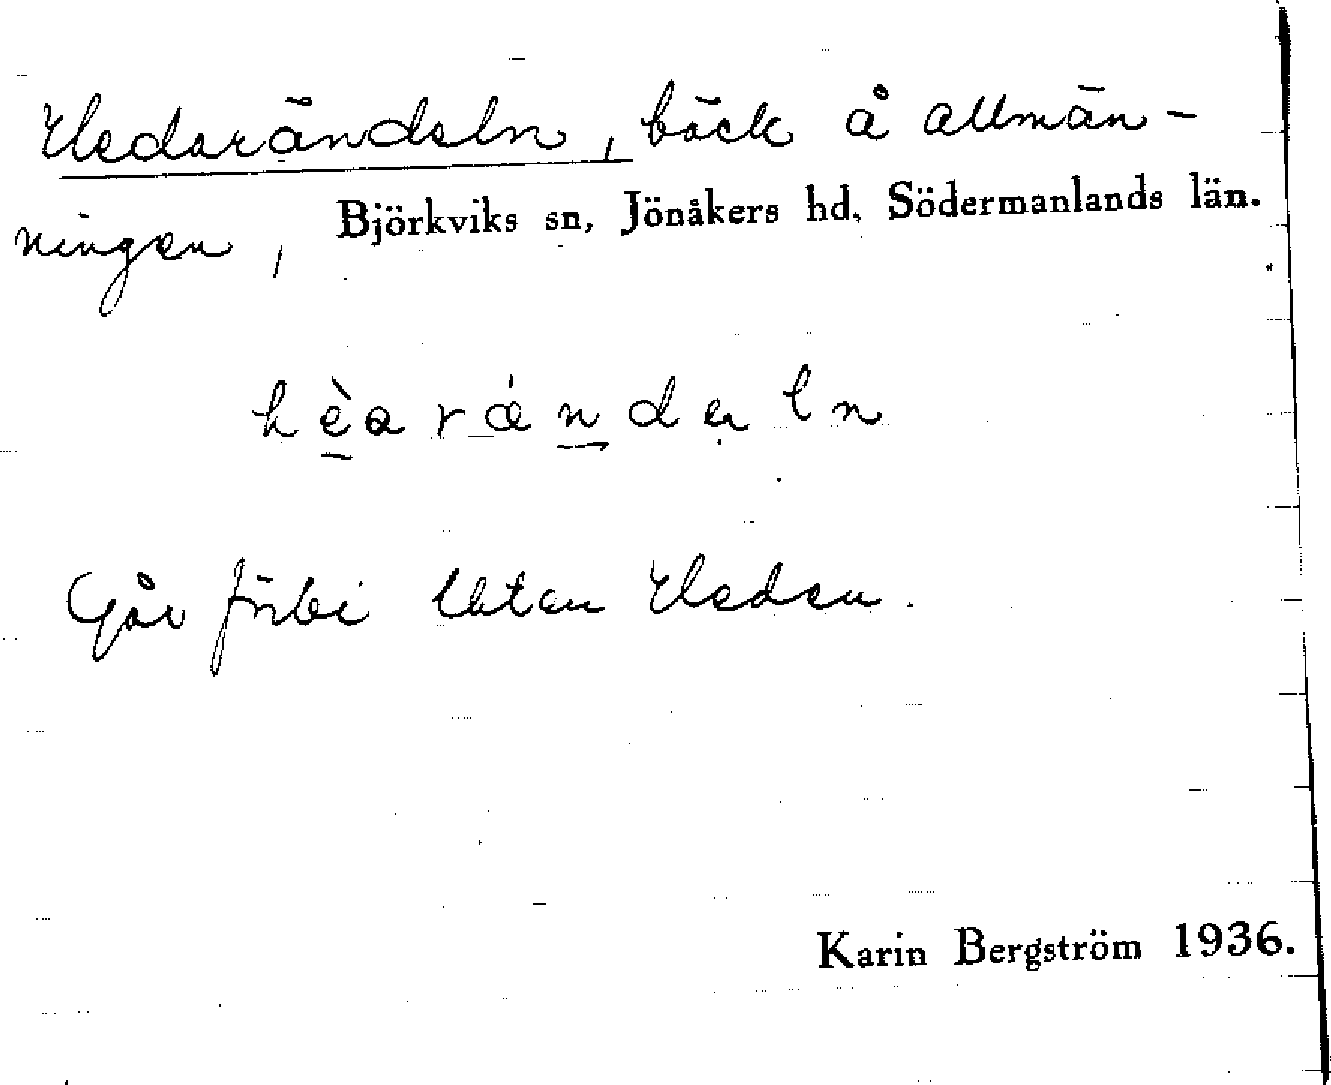 Hedarändeln, bäck å allmän-
ningen, Björkviks sn, Jönåkers hd, Södermanlands län.
hèarándeln
Går förbi Utan Heden.
Karin Bergström 1936.